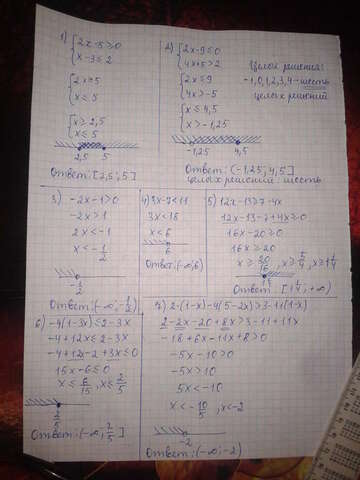 1) { 2x-5≥0
x-3≤2
{ 2x≥5
x≤5
{ x≥2,5
x≤5
2,5 5
Ответ: [2,5; 5]
2) { 2x-9≤0
4x+5>2
{ 2x≤9
4x>-5
{ x≤4,5
x>-1,25
-1,25 4,5
Ответ: (-1,25; 4,5]
целых решений: шесть
Целые решения:
-1,0,1,2,3,4-шесть
целых решений
3) -2x-1>0
-2x>1
2x<-1
x<-1/2
-1/2
Ответ: (-∞;-1/2)
4) 3x-7<11
3x<18
x<6
6
Ответ: (-∞;6)
5) 12x-13≥7-4x
12x-13-7+4x≥0
16x-20≥0
16x≥20
x≥20/16, x≥5/4, x≥1 1/4
1 1/4
Ответ: [1 1/4; +∞)
6) -4(1-3x)≤2-3x
-4+12x≤2-3x
-4+12x-2+3x≤0
15x-6≤0
x≤6/15, x≤2/5
2/5
Ответ: (-∞; 2/5]
7) 2·(1-x)-4(5-2x)>3-11(1-x)
2-2x-20+8x>3-11+11x
-18+6x-11x+8>0
-5x-10>0
-5x>10
5x<-10
x<-10/5, x<-2
-2
Ответ: (-∞;-2)